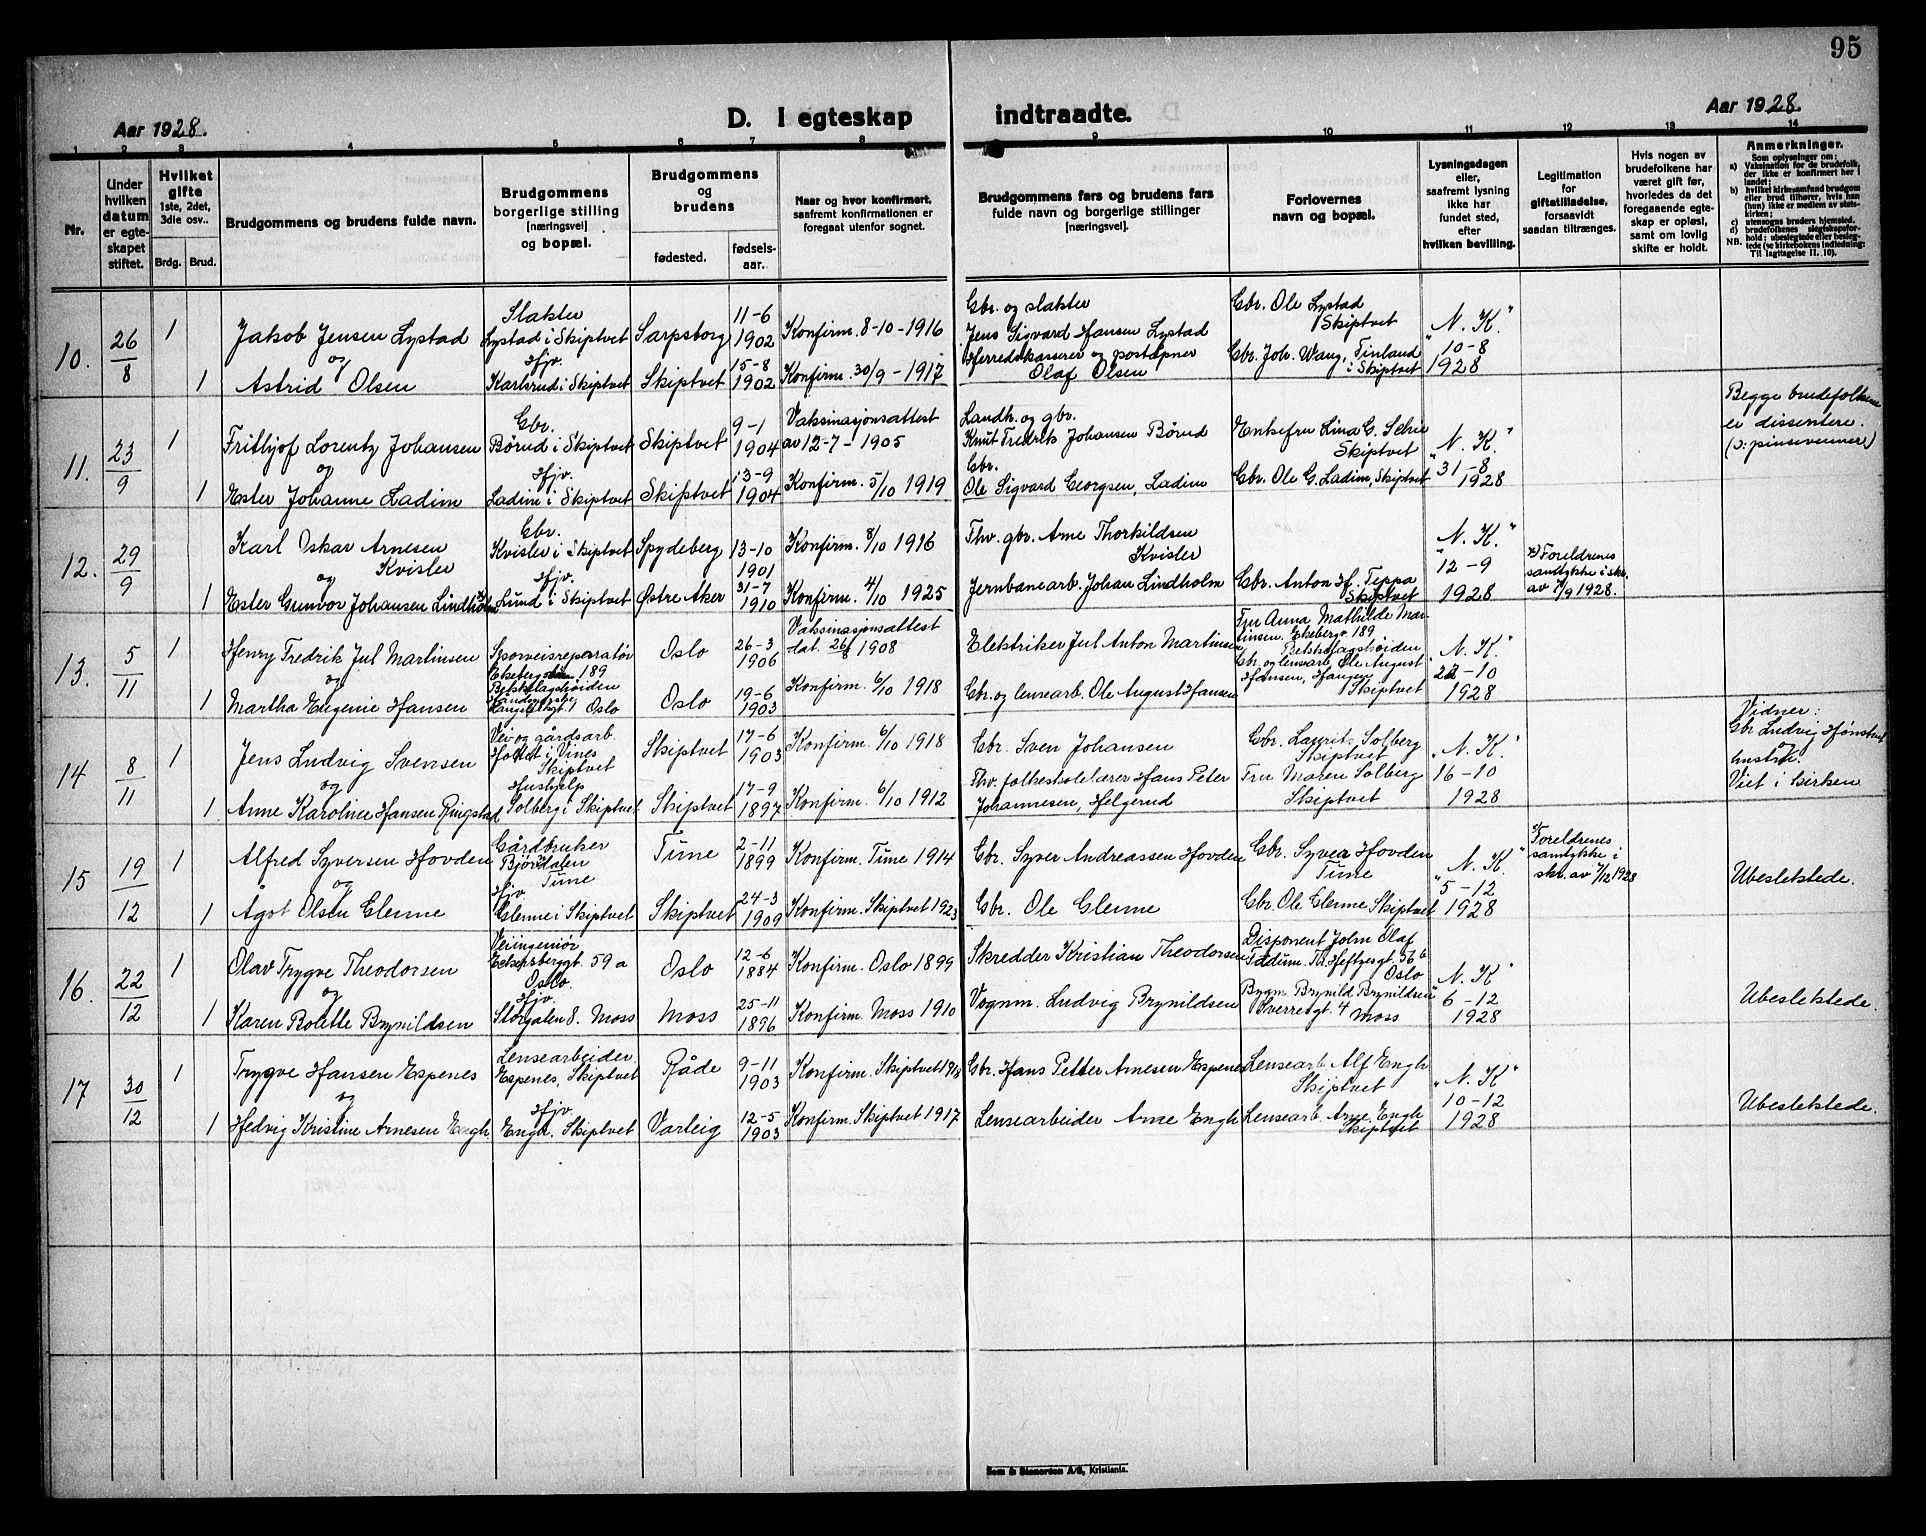 95
Aar 1928.
D. I egteskap indtraadte.
Aar 1928.
1 2 3 4 5 6 7 8 9 10 11 12 13 14
Nr.
Under hvilken datum er egteskapet stiftet.
Hvilket gifte 1ste, 2det, 3die osv..
Brdg. Brud.
Brudgommens og brudens fulde navn.
Brudgommens borgerlige stilling [næringsvei] og bopæl.
Brudgommens og brudens
fødested.
fødselsaar.
Naar og hvor konfirmert, saafremt konfirmationen er foregaat utenfor sognet.
Brudgommens fars og brudens fars fulde navn og borgerlige stillinger [næringsvei].
Forlovernes navn og bopæl.
Lysningsdagen eller, saafremt lysning ikke har fundet sted, efter hvilken bevilling.
Legitimation for giftetilladelse, forsaavidt saadan tiltrænges.
Hvis nogen av brudefolkene har været gift før, hvorledes da det foregaaende egteskap er opløst, samt om lovlig skifte er holdt.
Anmerkninger.
Som oplysninger om:
a) Vaksination for de brudefolk, der ikke er konfirmert her i landet;
b) hvilket kirkesamfund brudgom eller brud tilhører, hvis han (hun) ikke er medlem av statskirken;
c) utensogns bruders hjemsted.
d) brudefolkenes slegtskapsforhold: ubeslegtede eller beslegtede (se kirkebokens indledning:
NB. Til iagttagelse II. 10).
10. 26/8 1
Jakob Jensen Lystad
Slakter
Lystad i Skiptvet
Sarpsborg
11-6 1902
Konfirm. 8-10-1916
Gbr. og slakter
Jens Sigvard Hansen Lystad
Gbr. Ole Lystad
Skiptvet
"N. K."
10-8
1928
og
1 Astrid Olsen
Hjv.
Karlsrud i Skiptvet
Skiptvet
15-8 1902
Konfirm. 30/9-1917
Herredskasserer og postaapner
Olaf Olsen
Gbr. Joh. Wang, Finland
i Skiptvet
11. 23/9 1
Frithjof Lorentz Johansen
Gbr.
Børud i Skiptvet
Skiptvet
9-1 1904
Vaksinasjonsattest
av 12-7-1905
Landh. og gbr.
Knut Fredrik Johansen Børud
Enkefru Lina G.
Skiptvet
"N. K."
31-8
1928
Begge brudefolkene
er dissentere.
(ɔ: pinsevenner)
og
1 Ester Johanne Ladim
Hjv.
Ladim i Skiptvet
Skiptvet
13-9 1904
Konfirm. 5/10 1919
Gbr.
Ole Sigvard Georgsen, Ladim
Gbr. Ole G. Ladim, Skiptvet
12. 29/9
Karl Oskar Arnesen
Kvisler
Gbr.
Kvisler i Skiptvet
Spydeberg
13-10 1901
Konfirm. 8/10 1916
Fhv. gbr. Arne Thorkildsen
Kvisler
"N. K."
12-9
1928
x) Foreldrenes
samtykke i skr.
av 7/9 1928.
og
1 Ester Gunvor Johansen Lindholm x)
Hjv.
Lund i Skiptvet
Østre Aker
31-7 1910
Konfirm. 4/10 1925
Jernbanearb. Johan Lindholm
Gbr. Anton H. Teppa
Skiptvet
13. 5/11 1
Henry Fredrik Jul Martinsen
Sporveisreparatør
Ekebergveien 189
Bekkelagshøiden
Oslo
26-3 1906
Vaksinasjonsattest
dat. 26/8 1908
Elektriker Jul Anton Martinsen
Fru Anna Mathilde Martinsen, Ekebergv. 189
Bekkelagshøiden
"N. K."
22-10
1928
og
1 Martha Eugenie Hansen
1 Oslo
Oslo
19-6 1903
Konfirm. 6/10 1918
Gbr. og lensearb. Ole August Hansen
Gbr. og lensearb. Ole August
Hansen, Haugen
Skiptvet
14 8/11 1
Jens Ludvig Svensen
Vei- og gårdsarb.
i Vines
Skiptvet
Skiptvet
17-6 1903
Konfirm. 6/10 1918
Gbr. Sven Johansen
Gbr. Laurits Solberg
Skiptvet
"N. K."
16-10
1928
Vidner:
Gbr Ludvig
hustru.
Viet i kirken
og
1 Anne Karoline Hansen Ringstad
Hushjelp
Solberg i Skiptvet
Skiptvet
17-9 1897
Konfirm. 6/10 1912
Fhv. folkeskolelærer Hans Peter
Johannesen, Helgerud
Fru Maren Solberg
Skiptvet
15 19/12 1
Alfred Syversen Hovden
Gårdbruker
Bjørdalen
Tune
Tune
2-11 1899
Konfirm. Tune 1914
Gbr. Syver Andreassen Hovden
Gbr. Syver Hovden
Tune
"N. K."
5-12
1928
x) Foreldrenes
samtykke i
skr. av 7/12 1928
Ubeslektede.
og
1 Ågot Olsen Glenne
Hjv
Glenne i Skiptvet
Skiptvet
24-3 1909
Konfirm. Skiptvet 1923
Gbr. Ole Glenne
Gbr. Ole Glenne Skiptvet
16. 22/12 1
Olav Trygve Theodorsen
Veiingeniør
Eckersbergt. 59 a
Oslo.
Oslo
12-6 1884
Konfirm. Oslo 1899
Skredder Kristian Theodorsen
Disponent John Olaf
Th. Heftyesgt. 56 b
Oslo
"N. K"
6-12
1928
Ubeslektede.
og
1 Karen Bolette Brynildsen
Hjv.
Storgaten 8. Moss
Moss
25-11 1896
Konfirm. Moss 1910
Vognm. Ludvig Brynildsen
Bygm. Brynild Brynildsen
Sverresgt. 4 Moss
17 30/12 1
Trygve Hansen Espenes
Lensearbeider
Espenes, Skiptvet
Råde
9-11 1903
Konfirm. Skiptvet 1918
Gbr. Hans Petter Arnesen Espenes
Lensearb. Alf Engh
Skiptvet
"N. K"
10-12
1928
Ubeslektede.
og
1 Hedvig Kristine Arnesen Engh
Hjv.
Engh. Skiptvet
Varteig
12-5 1903
Konfirm. Skiptvet 1917
Lensearbeider Arne Engh
Lensearb. Arne Engh
Skiptvet
Sem & Stenersen A/S, Kristiania.